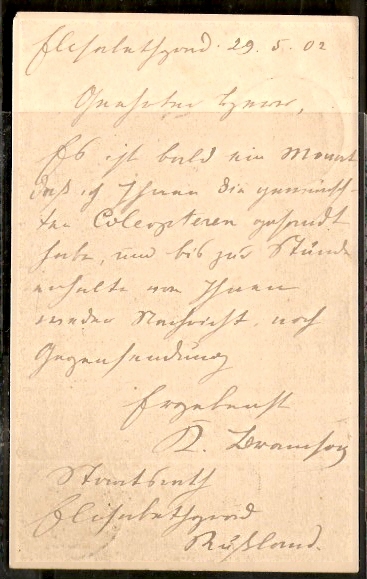 Elisabethgrad. 29. 5. 02
Geehrter Herr,
Es ist bald ein Monat
daß ich Ihnen die gewünsch-
ten Coleopteren gesandt
habe, und bis zur Stunde
erhalte von Ihnen
weder Nachricht, noch
Gegensendung
Ergebenst
K. Bramson
Staatsrath
Elisabethgrad
Rußland.